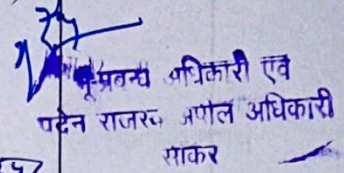 भू प्रबन्ध अधिकारी एवं
पदेन राजस्व अपील अधिकारी
सीकर